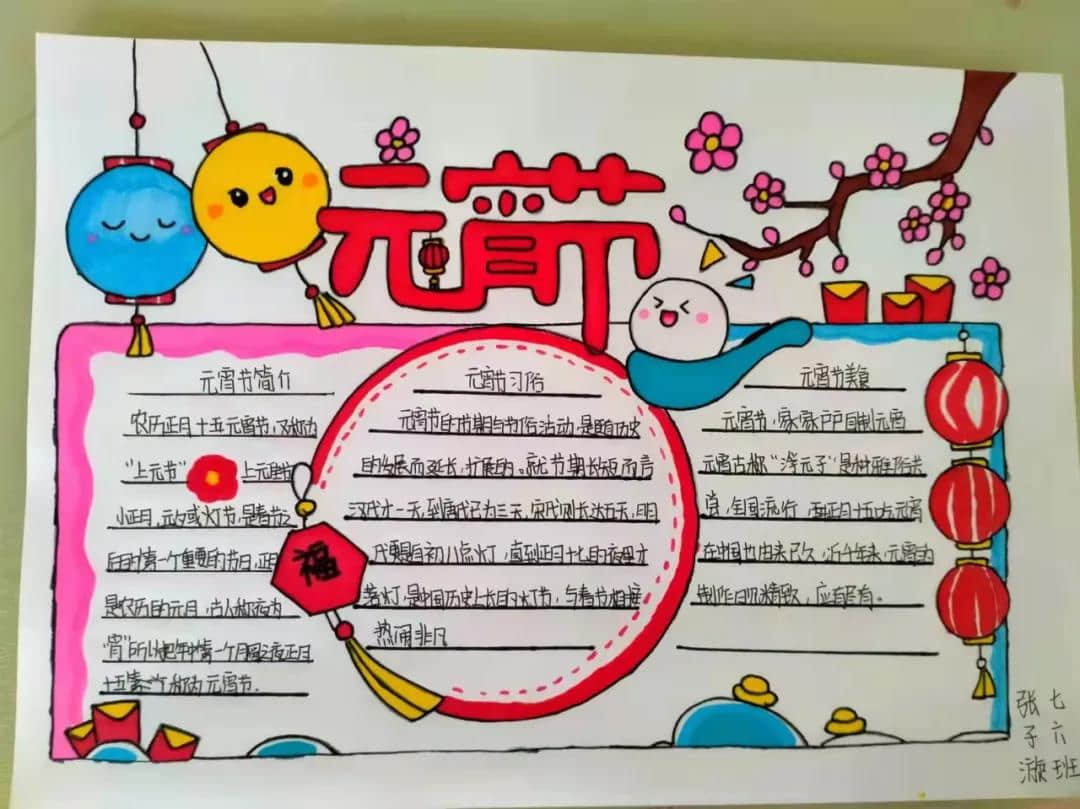 元宵节
元宵节简介
农历正月十五元宵节,又称为
"上元节" 上元佳节
小正月,元夕或灯节,是春节之
后的第一个重要的节日,正月
是农历的元月,古人称夜为
"宵"所以把年中第一个月圆之夜正月
十五 称为元宵节.
福
元宵节习俗
元宵节的节期与节俗活动,是随历史
的发展而延长,扩展的。就节期长短而言
汉代才一天,到唐代已为三天,宋代则长达五天,明
代更是自初八点灯,直到正月十七的夜里才
落灯,是中国历史上最长的灯节,与春节相接
热闹非凡
元宵节美食
元宵节,家家户户自制元宵
元宵古称"浮元子"是
全国流行 正月十五吃元宵
在中国也由来已久,近千年来,元宵的
制作日见精致,应有尽有。
七六班
张子漩